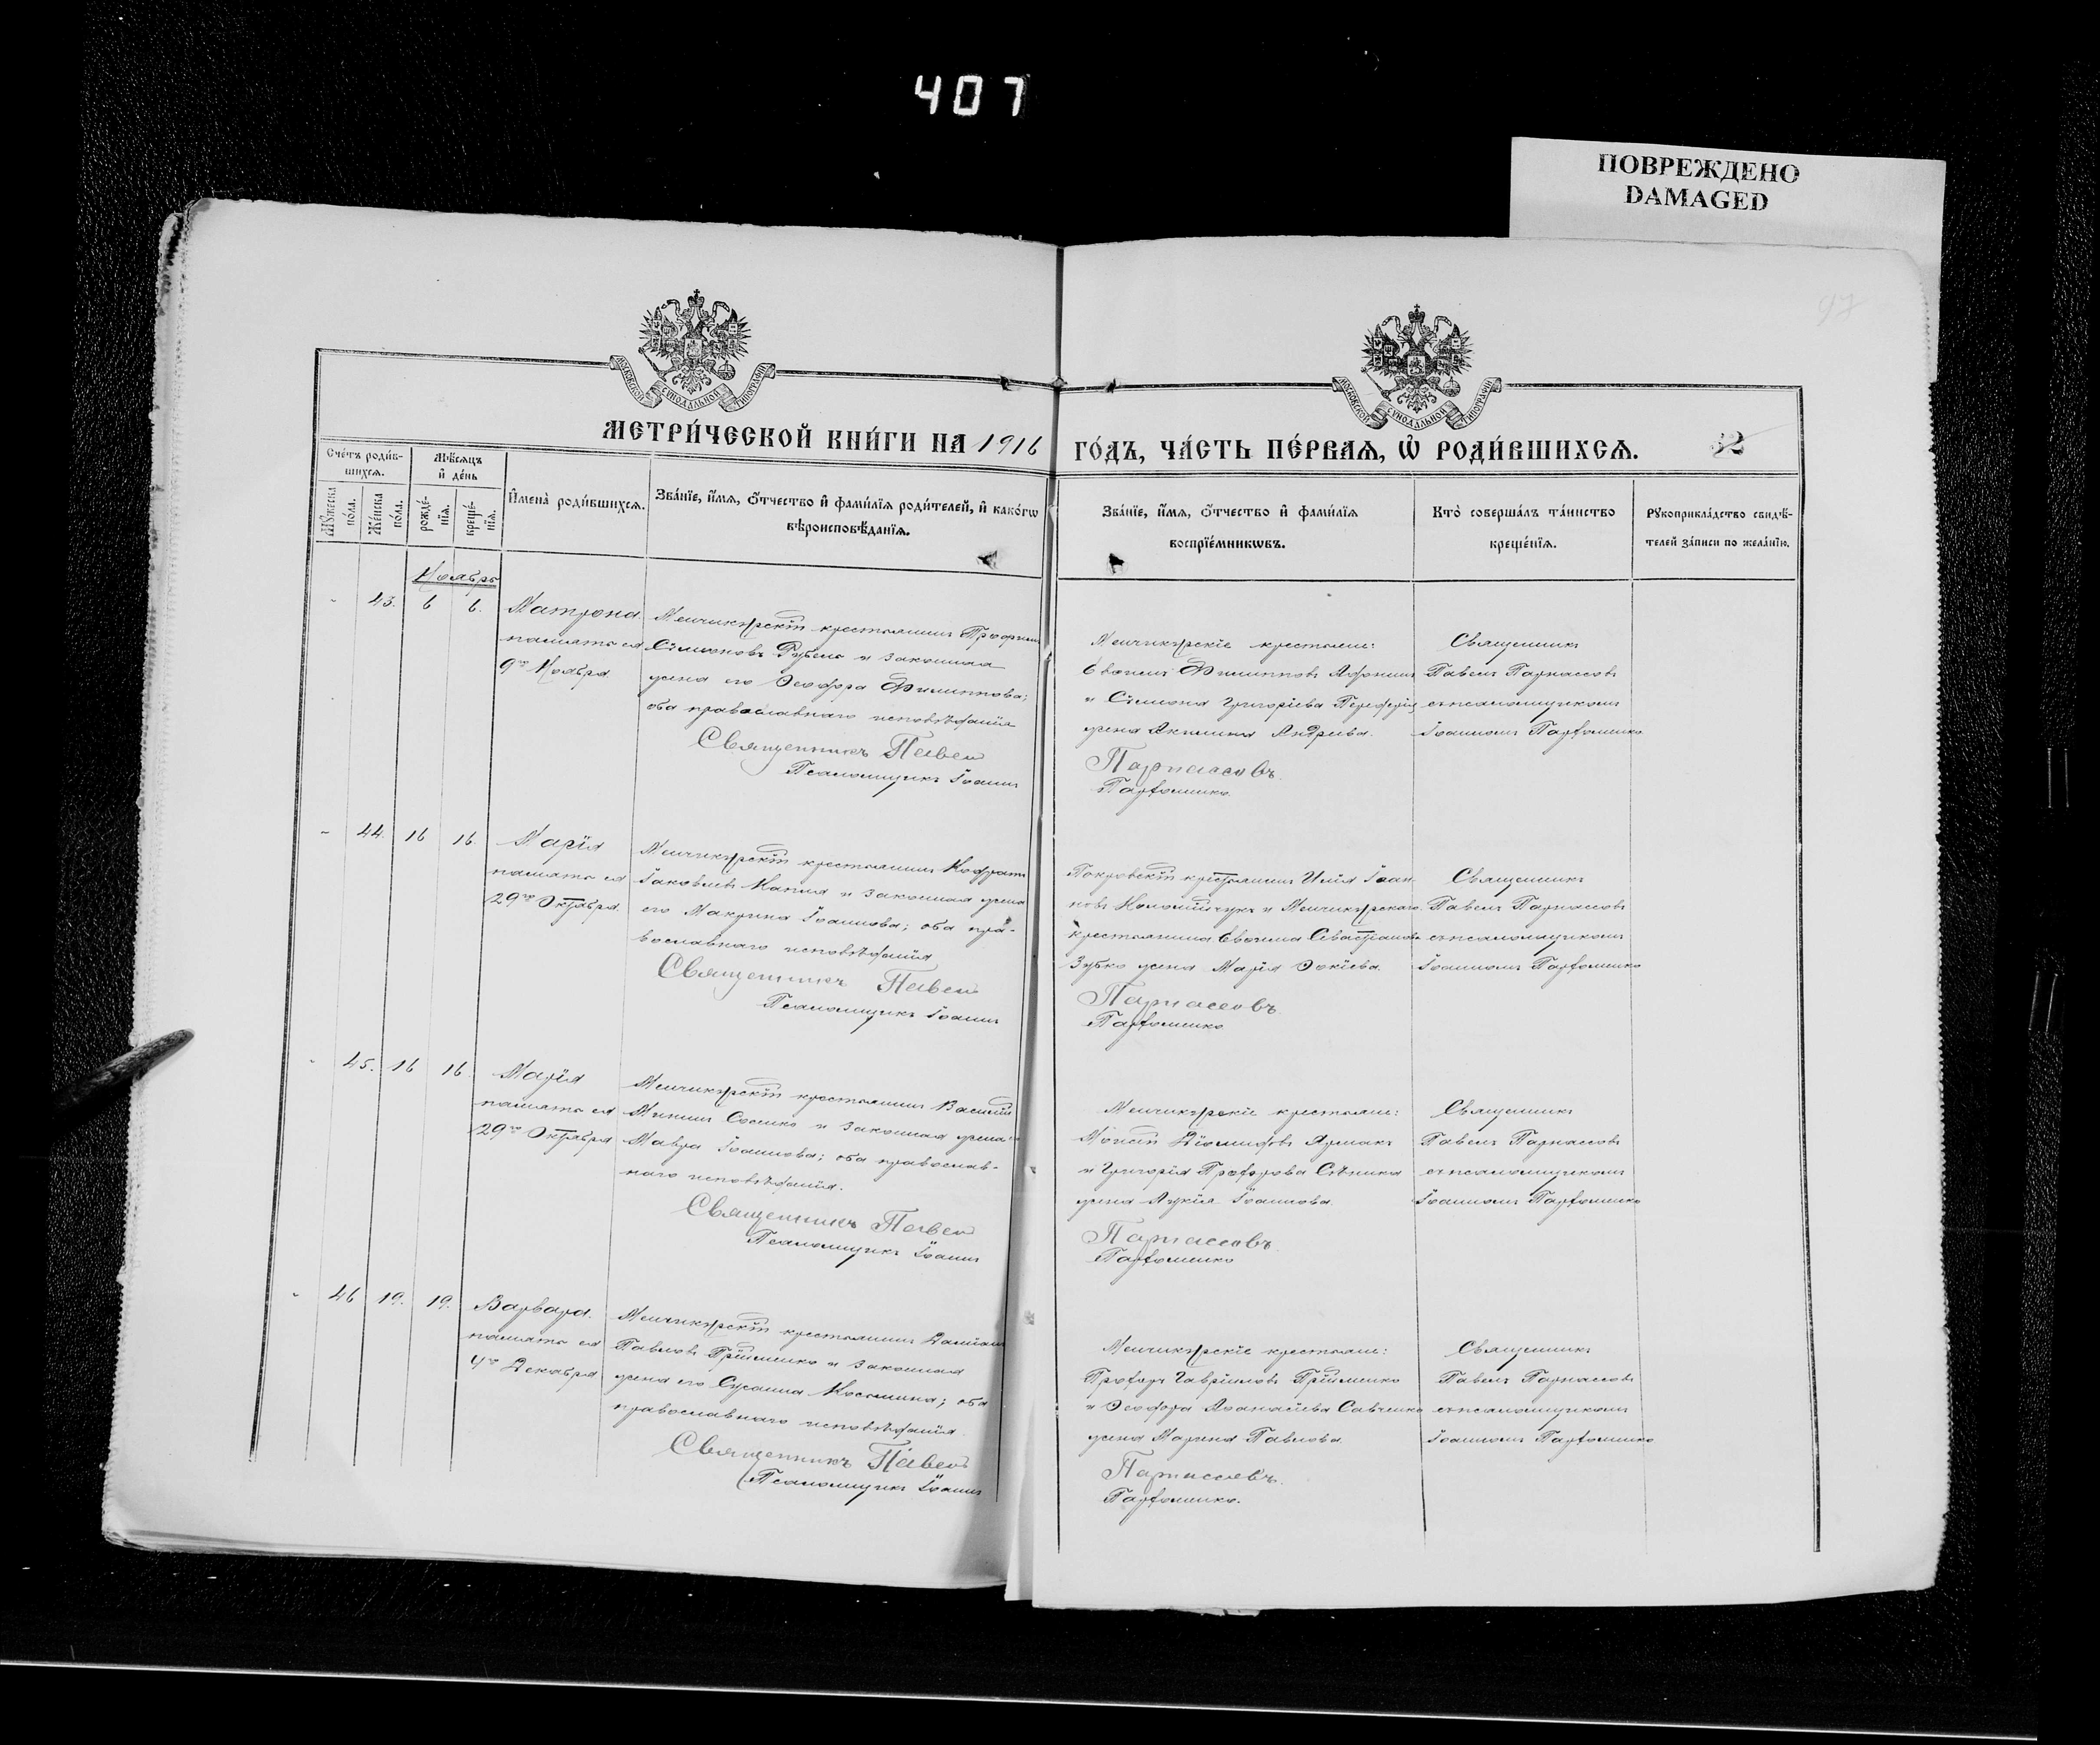 407
ПОВРЕЖДЕНО
DAMAGED
97
МОСКОВСКОЙ СѴНОДАЛЬНОЙ ТИПОГРАФІИ
МОСКОВСКОЙ СѴНОДАЛЬНОЙ ТИПОГРАФІИ
МЕТРИ́ЧЕСКОЙ КНИ́ГИ НА 1916 ГО́ДЪ, ЧА́СТЬ ПЕ́РВАЯ, Ѡ҆ РОДИ́ВШИХСЯ.
32
Сче́тъ роди́в-
шихся.
Мѣ́сяцъ
и҆ де́нь
Мꙋ́жеска
по́ла.
Же́нска
по́ла.
рожде́-
нїя.
креще́-
нїя.
И҆мена̀ роди́вшихся.
Зва́нїе, и҆́мя, ѻ҆́тчество и҆ фами́лїя роди́телей, и҆ како́гѡ
вѣроисповѣ́данїя.
Зва́нїе, и҆́мя, ѻ҆́тчество и҆ фами́лїя
воспрїе́мникѡвъ.
Кто̀ соверша́лъ та́инство
креще́нїя.
Рꙋкоприкла́дство свидѣ́-
телей за́писи по жела́нїю.
Ноябрь
- 43. 6 6.
Матрона
память ея
9го Ноября
Менчикурскій крестьянинъ Трофимъ
Сѵмеоновъ Губенъ и законная
жена его Ѳеодора Филиппова;
оба православнаго исповѣданія
Священникъ Павелъ
Псаломщикъ Іоаннъ
Менчикурскіе крестьяне:
Евѳимъ Филипповъ Афонинъ
и Сѵмеона Григоріева
жена Акилина Андреева.
Парнассовъ.
Парфоменко.
Священникъ
Павелъ Парнассовъ
съ псаломщикомъ
Іоанномъ Парфоменко
- 44. 16 16.
Марія
память ея
29го Октября
Менчикурскій крестьянинъ Кодратъ
Іаковлевъ Капля и законная жена
его Макрина Іоаннова; оба пра-
вославнаго исповѣданія
Священникъ Павелъ
Псаломщикъ Іоаннъ
Покровскій крестьянинъ Илія Іоан-
новъ Коломійчукъ и Менчикурскаго
крестьянина Евѳима Севастіанова
Зубко жена Марія Ѳокіева.
Парнассовъ.
Парфоменко
Священникъ
Павелъ Парнассовъ
съ псаломщикомъ
Іоанномъ Парфоменко
- 45. 16 16.
Марія
память ея
29го Октября
Менчикурскій крестьянинъ Василій
Мининъ Сосенко и законная жена его
Мавра Іоаннова; оба православ-
наго исповѣданія.
Священникъ Павелъ
Псаломщикъ Іоаннъ
Менчикурскіе крестьяне:
Моисей Діомидовъ Ярмакъ
и Григорія Прохорова Сѣника
жена Лукія Іоаннова.
Парнассовъ.
Парфоменко
Священникъ
Павелъ Парнассовъ
съ псаломщикомъ
Іоанномъ Парфоменко
- 46 19. 19.
Варвара.
память ея
4го Декабря
Менчикурскій крестьянинъ Даміанъ
Павловъ Прійменко и законная
жена его Сусанна Косьмина; оба
православнаго исповѣданія
Священникъ Павелъ
Псаломщикъ Іоаннъ
Менчикурскіе крестьяне:
Прохоръ Гавріиловъ Прійменко
и Ѳеодора Аѳанасіева Савченко
жена Марина Павлова.
Парнассовъ.
Парфоменко.
Священникъ
Павелъ Парнассовъ
съ псаломщикомъ
Іоанномъ Парфоменко